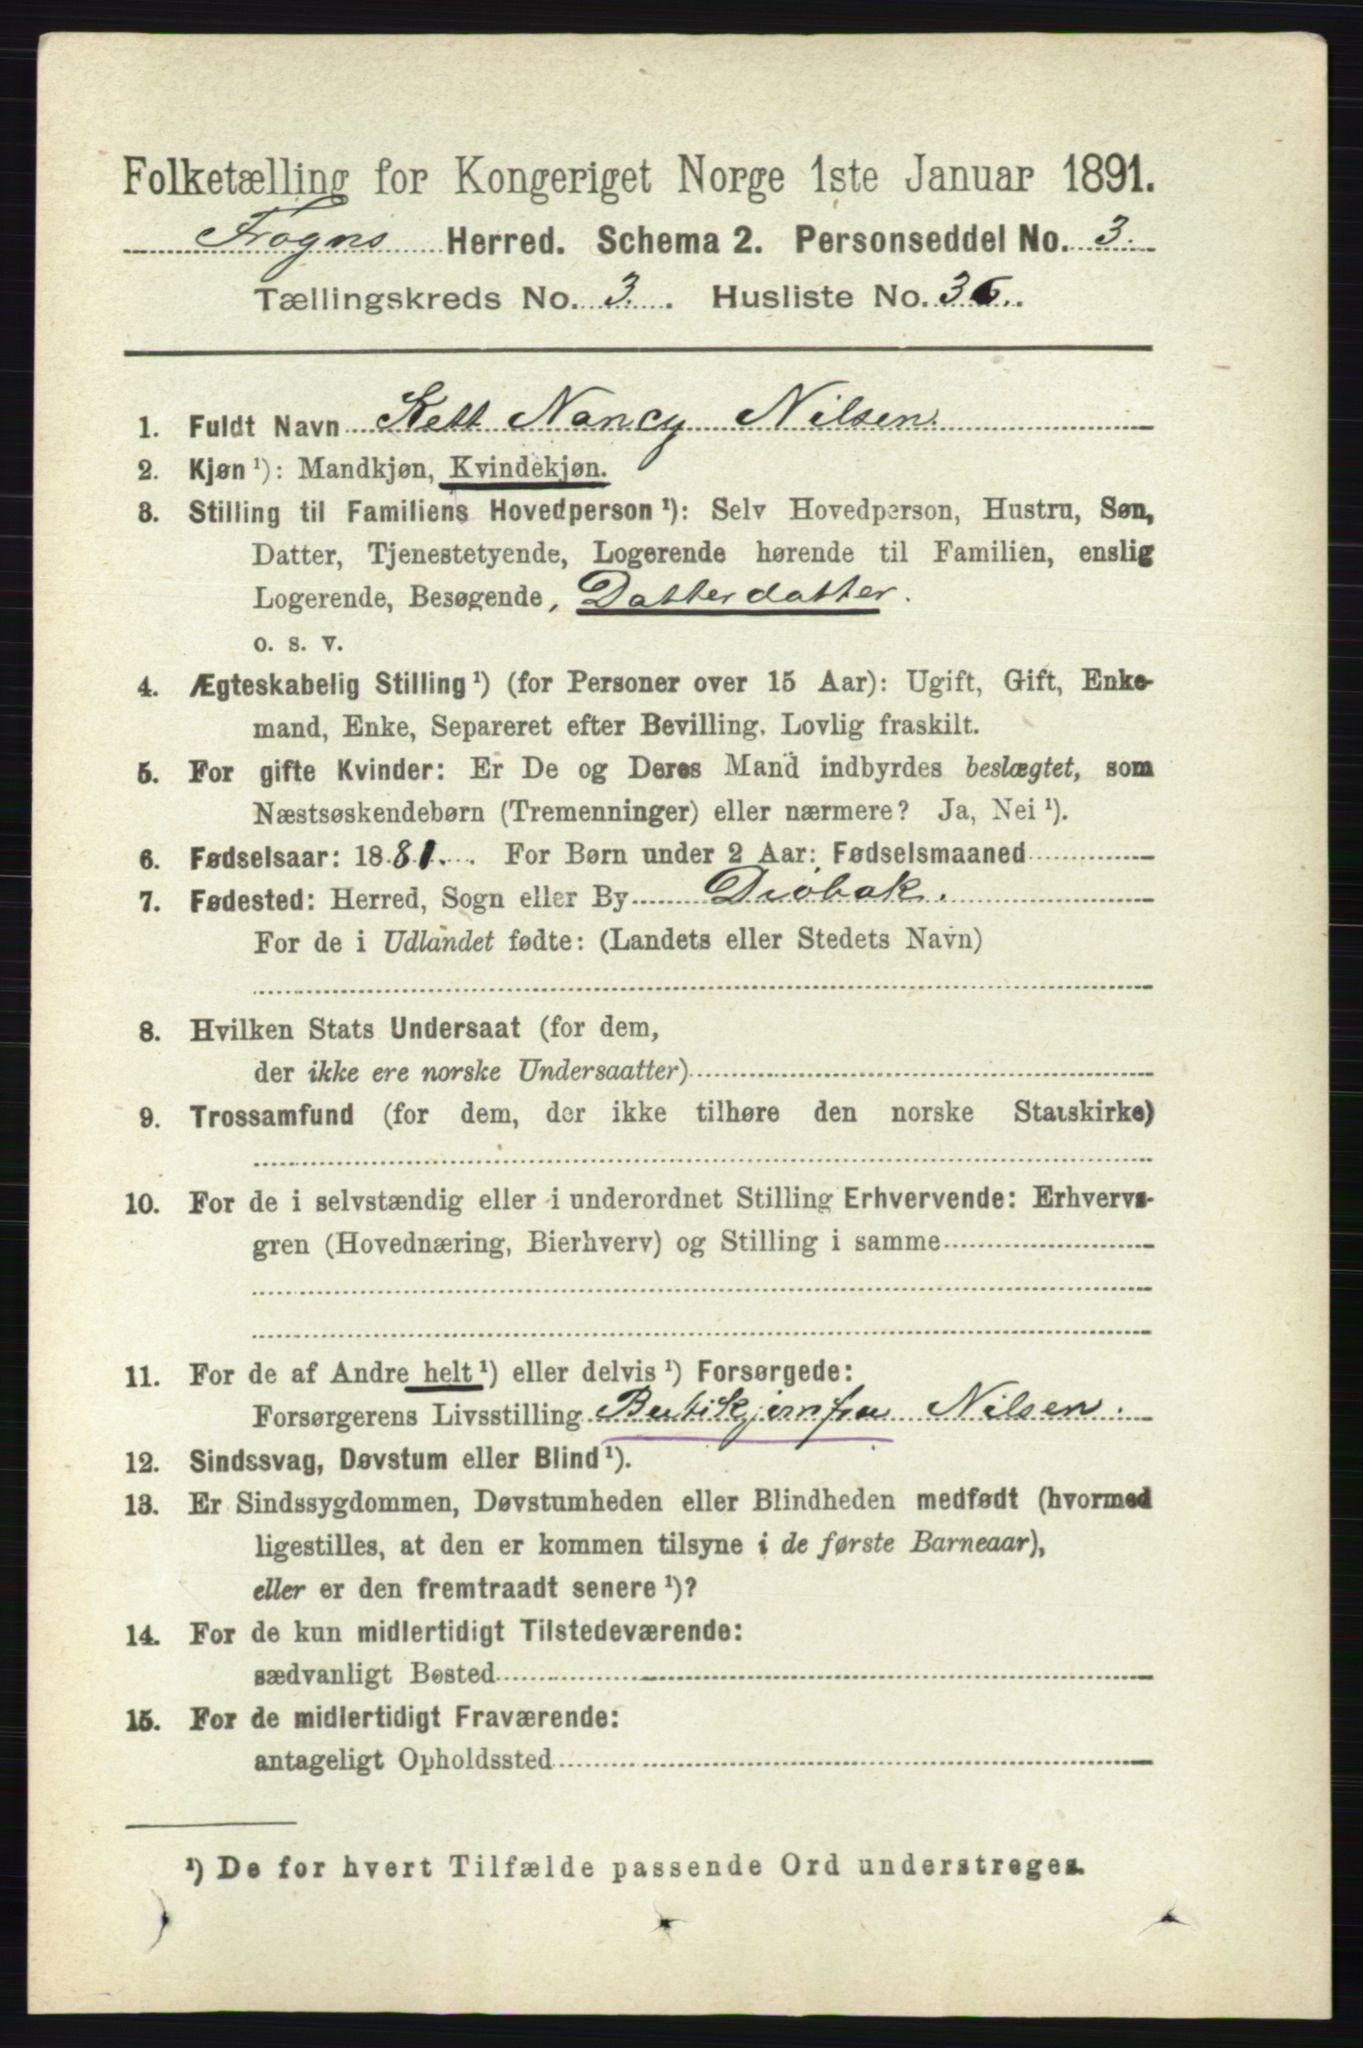 Folketælling for Kongeriget Norge 1ste Januar 1891.
Frogns Herred. Schema 2. Personseddel No. 3.
Tællingskreds No. 3. Husliste No. 36.
1. Fuldt Navn Kett Nancy Nilsen.
2. Kjøn ¹): Mandkjøn, Kvindekjøn.
3. Stilling til Familiens Hovedperson ¹): Selv Hovedperson, Hustru, Søn,
Datter, Tjenestetyende, Logerende hørende til Familien, enslig
Logerende, Besøgende, Datterdatter.
o. s. v.
4. Ægteskabelig Stilling ¹) (for Personer over 15 Aar): Ugift, Gift, Enke-
mand, Enke, Separeret efter Bevilling. Lovlig fraskilt.
5. For gifte Kvinder: Er De og Deres Mand indbyrdes beslægtet, som
Næstsøskendebørn (Tremenninger) eller nærmere? Ja, Nei ¹).
6. Fødselsaar: 1881. For Børn under 2 Aar: Fødselsmaaned
7. Fødested: Herred, Sogn eller By Drøbak.
For de i Udlandet fødte: (Landets eller Stedets Navn)
8. Hvilken Stats Undersaat (for dem,
der ikke ere norske Undersaatter)
9. Trossamfund (for dem, der ikke tilhøre den norske Statskirke)
10. For de i selvstændig eller i underordnet Stilling Erhvervende: Erhvervs-
gren (Hovednæring, Bierhverv) og Stilling i samme
11. For de af Andre helt ¹) eller delvis ¹) Forsørgede:
Forsørgerens Livsstilling Nilsen.
12. Sindssvag, Døvstum eller Blind ¹).
13. Er Sindssygdommen, Døvstumheden eller Blindheden medfødt (hvormed
ligestilles, at den er kommen tilsyne i de første Barneaar),
eller er den fremtraadt senere ¹)?
14. For de kun midlertidigt Tilstedeværende:
sædvanligt Bosted
15. For de midlertidigt Fraværende:
antageligt Opholdssted
¹) De for hvert Tilfælde passende Ord understreges.